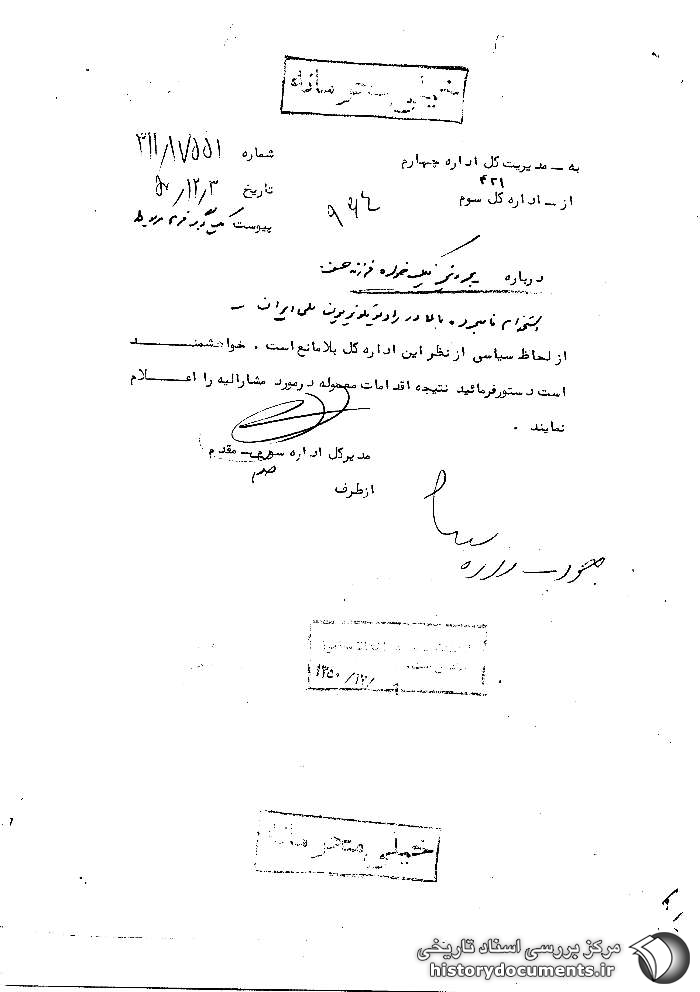 خیلی محرمانه
به ـ مدیریت کل اداره چهارم
۴۲۱
از ـ اداره کل سوم
شماره ۳۱۱/۱۷۵۵۱
تاریخ ۵۰/۱۲/۳
پیوست یک برگ فرم مربوطه
درباره پرویز نیکخواه فرزند
استخدام نامبرده بالا در رادیو تلویزیون ملی ایران
از لحاظ سیاسی از نظر این اداره کل بلامانع است . خواهشمنـــد
است دستور فرمائید نتیجه اقدامات معموله در مورد مشارالیه را اعـــلام
نمایند .
مدیرکل اداره سوم ـ مقدم
از طرف
۱۳۵۰/۱۲/
خیلی محرمانه
مرکز بررسی اسناد تاریخی
historydocuments.ir